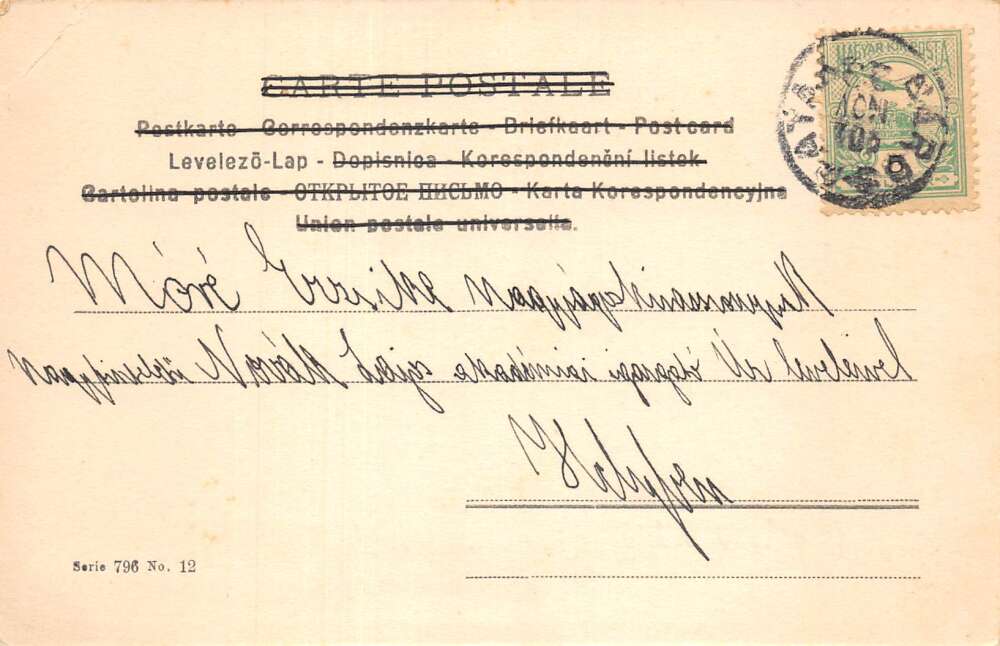 CARTE POSTALE
Postkarte - Correspondenzkarte - Briefkaart - Post card
Levelező-Lap - Dopisnica - Korespondenční listek
Cartolina postale - ОТКРЫТОЕ ПИСЬМО - Karta Korespondencyjna
Union postale universelle.
MAGYAR KIR. POSTA
Móré Erzsike
Novák Lajos akadémiai igazgató Úr leveleivel
Helyben
Serie 796 No. 12